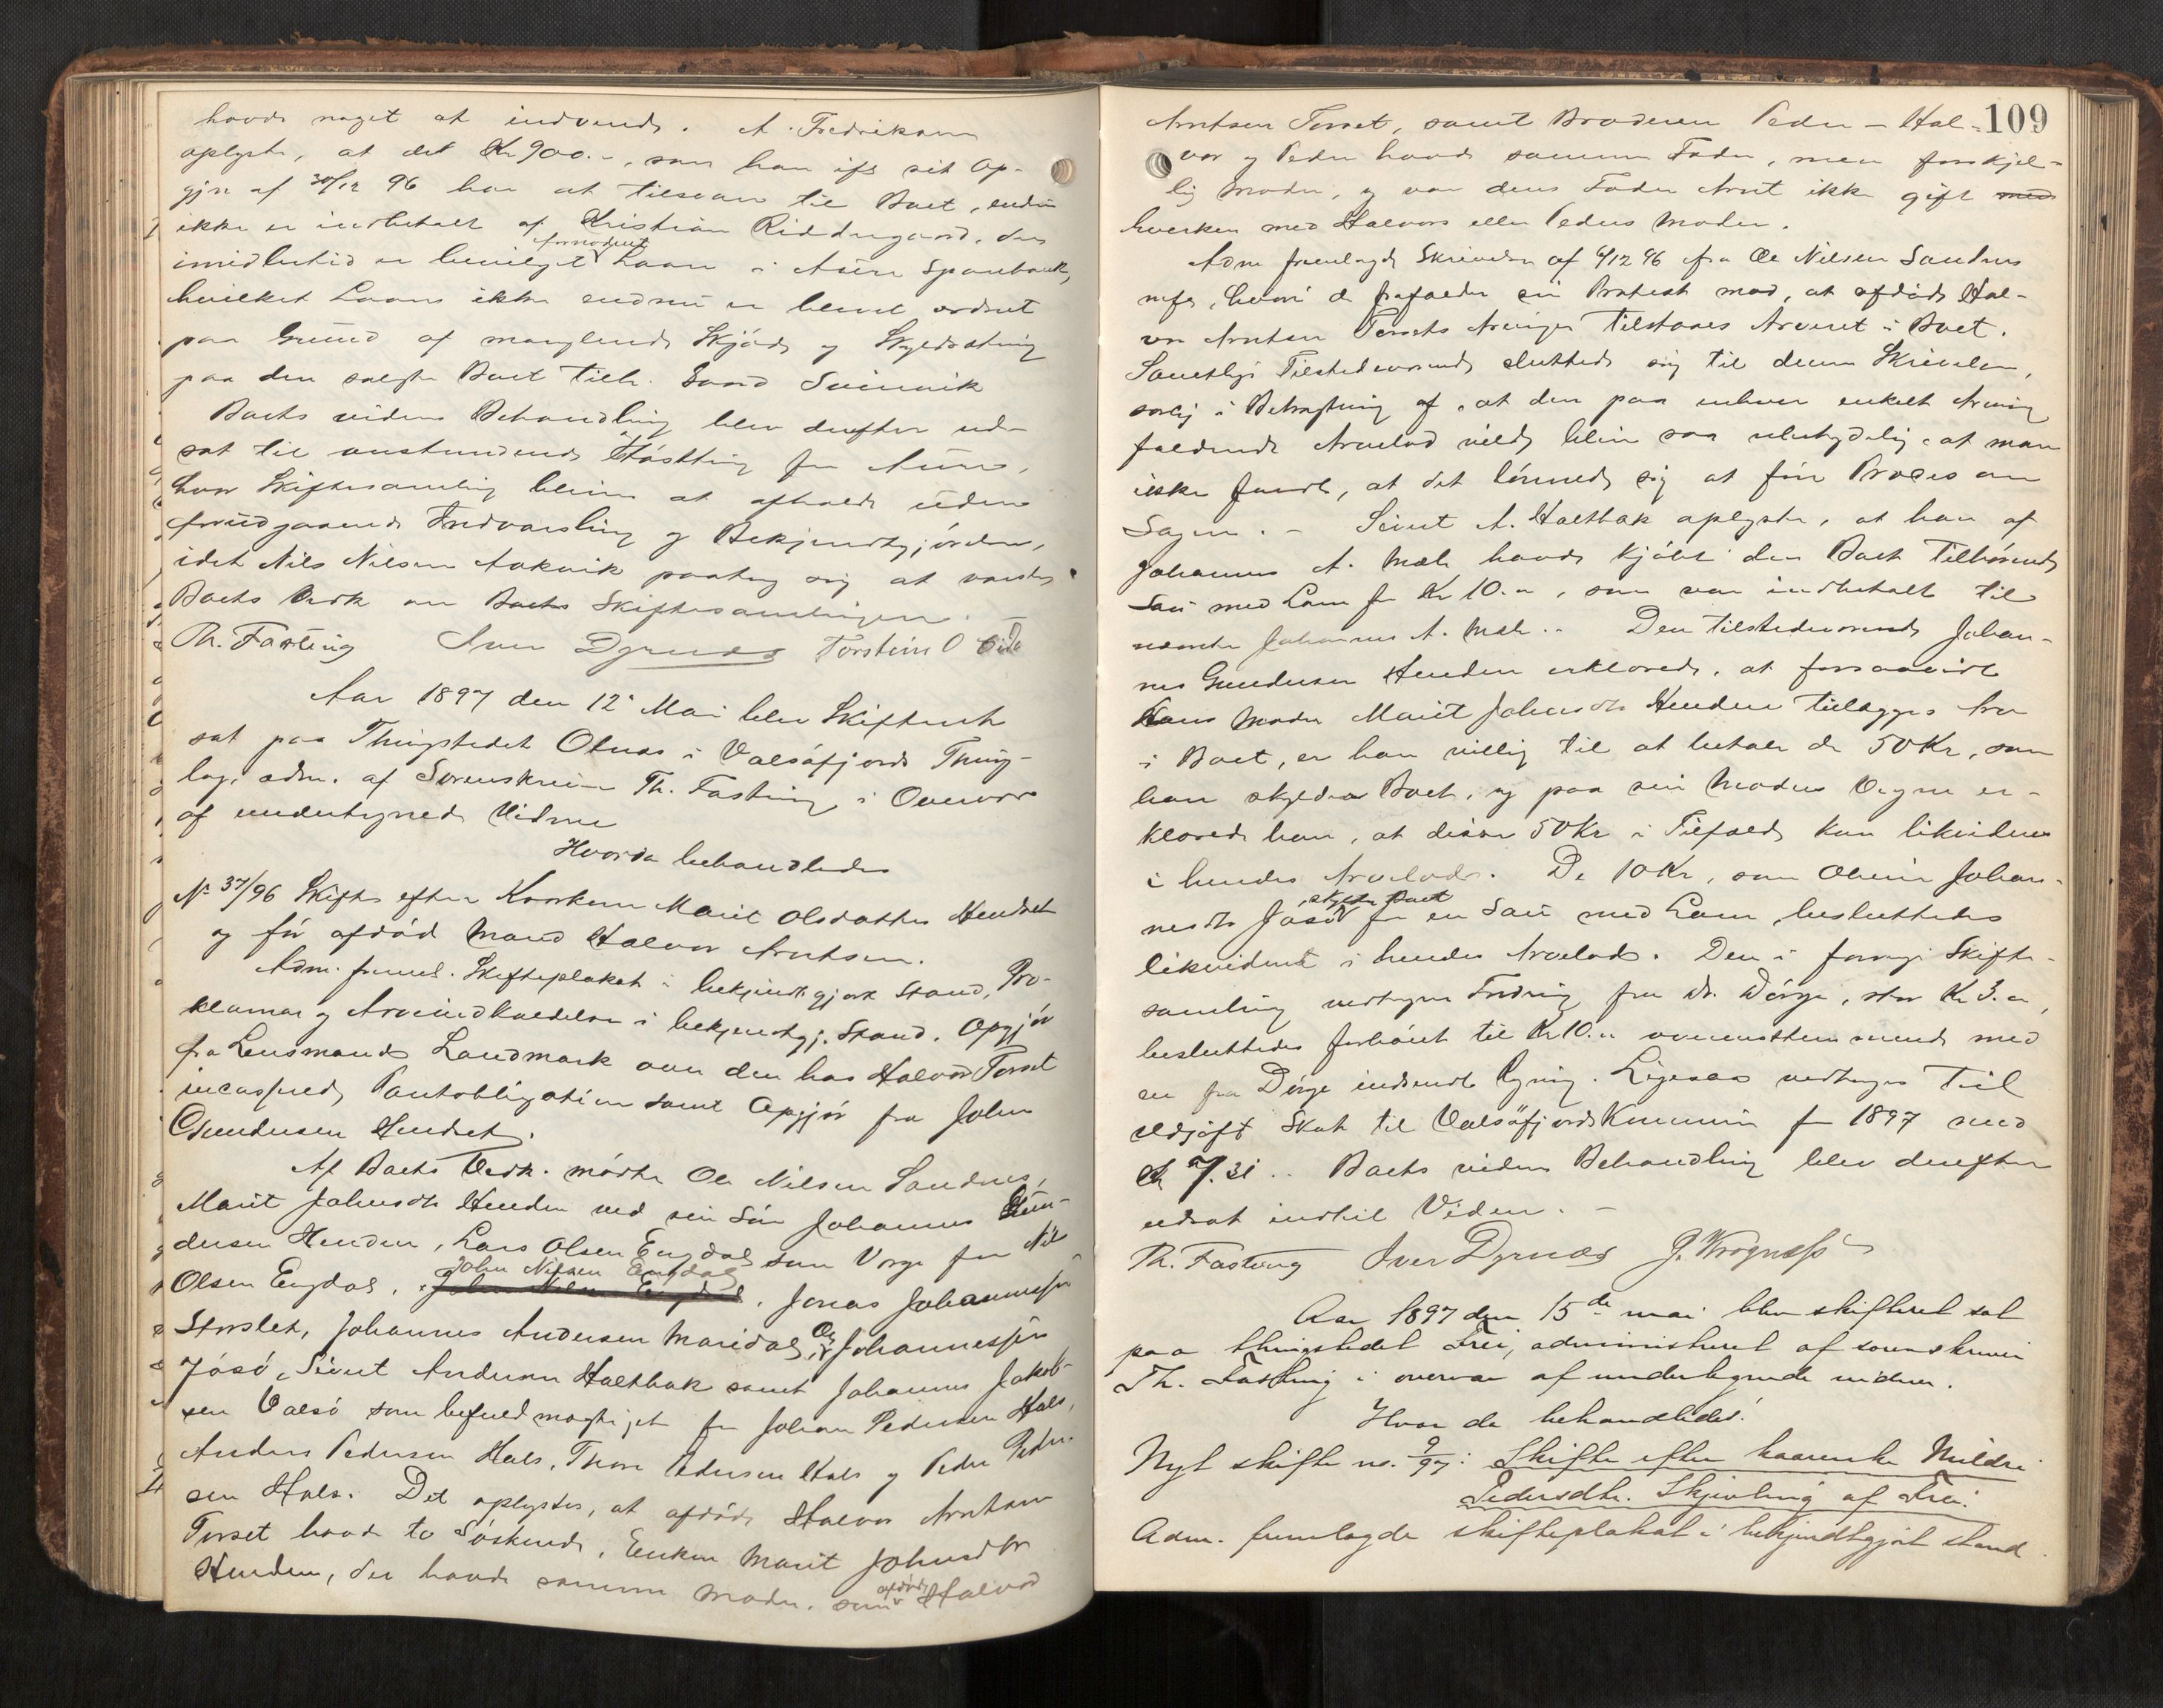 havde noget at indvende. A. Fredriksen
oplyste, at det Kr 900.-, som han ifg sit Op-
gjør af 30/12 96 har at tilsvare til Boet, endnu
ikke er indbetalt af Kristian Riddergaard, der
imidlertid er bevilget fornødent Laan i Aure Sparebank,
hvilket Laan ikke endnu er blevet ordnet
paa Grund af manglende Skjøde og Skyldsætning
paa den solgte Boet tilh. Gaard Svinvik
Boets videre Behandling blev derefter ud-
sat til anstundende Høstting for Aure,
hvor Skiftesamling bliver at afholde uden
forudgaaende Indvarsling og Bekjendtgjørelse,
idet Nils Nilsen Aakvik paatog sig at varsle
Boets Vedk. om Boets Skiftesamlingen. –
Th. Fasting Iver Dyrnæs Torstein O Eide
Aar 1897 den 12' Mai blev Skifteret
sat paa Thingstedet Otnæs i Valsøfjords Thing-
lag, adm. af Sorenskriver Th. Fasting i Overvær
af undertegnede Vidner
Hvorda behandledes
No 37/96 Skifte efter Kaarkone Marit Olsdatter Hendset
og før afdød Mand Halvor Arntsen.
Adm. freml. Skifteplakat i bekjendtgjort Stand, Pro-
klama og Arveindkaldelse i bekjendtgj. Stand. Opgjør
fra Lensmand Landmark over den hos Halvor Torset
incasserede Pantobligation samt Opgjør fra John
Gundersen Hendset.
Af Boets Vedk. mødte Ole Nilsen Sandnes,
Marit Johnsdtr Henden ved sin Søn Johannes Gun-
dersen Henden, Lars Olsen Engdal som Verge for Nils
Olsen Engdal, John Nilsen Engdal, Jonas Johannessen
Storslet, Johannes Andersen Maridal, Ole Johannessen
Jøsø, Sivert Andersen Haltbak samt Johannes Jakob-
sen Valsø som befuldmægtiget for Johan Pedersen Hals,
Anders Pedersen Hals, Thore Pedersen Hals og Peder Peder-
sen Hals. Det oplystes, at afdøde Halvor Arntsen
Torset havde to Søskende, Enken Marit Johnsdtr
Henden, der havde samme Moder, som afdøde Halvor
109
Arntsen Torset, samt Broderen Peder – Hal-
vor og Peder havde samme Fader, men forskjel-
lig Moder, og var deres Fader Arnt ikke gift med
hverken med Halvors eller Peders Moder.
Adm fremlagde Skrivelse af 9/12 96 fra Ole Nilsen Sandnes
mfl, hvori de frafalder sin Protest mod, at afdøde Hal-
vor Arntsen Torsets Arvinger tilstaaes Arveret i Boet.
Samtlige Tilstedeværende sluttede sig til denne Skrivelse,
særlig i Betragtning af, at den paa enhver enkelt Arving
faldende Arvelod vilde blive saa ubetydelig, at man
ikke fandt, at det lønnede sig at føre Proces om
Sagen. – Sivert A. Haltbak oplyste, at han af
Johannes A. Mæle havde kjøbt den Boet tilhørende
Sau med Lam for Kr 10.-, som var indbetalt til
nævnte Johannes A. Mæle. – Den tilstedeværende Johan-
nes Gundersen Henden erklærede, at forsaavidt
hans Moder Marit Johnsdtr Henden tillægges Arv
i Boet, er han villig til at betale de 50 Kr, som
han skylder Boet, og paa sin Moders Vegne er-
klærede han, at disse 50 Kr i Tilfælde kan likvideres
i hendes Arvelod. De 10 Kr, som Oline Johan-
nesdtr Jøsø skylder Boet for en Sau med Lam, besluttedes
likvideret i hendes Arvelod. Den i forrige Skifte-
samling vedtagne Fordring fra Dr. Dørge, stor Kr 3.-,
besluttedes forhøiet til Kr 10.- overensstemmende med
en fra Dørge indsendt Regning. Ligesaa vedtoges til
Udgift Skat til Valsøfjords Kommune for 1897 med
Kr 7.31. – Boets videre Behandling blev derefter
udsat indtil Videre. –
Th. Fasting Iver Dyrnæs J. Krognæss
Aar 1897 den 15de mai blev skifteret sat
paa thingstedet Frei, administreret af sorenskriver
Th. Fasting i overvær af undertegnede vidner.
Hvor da behandledes:
Nyt skifte no. 9/97: Skifte efter kaarenke Mildri
Pedersdtr. Skjevling af Frei.
Adm. fremlagde skifteplakat i bekjendtgjort stand